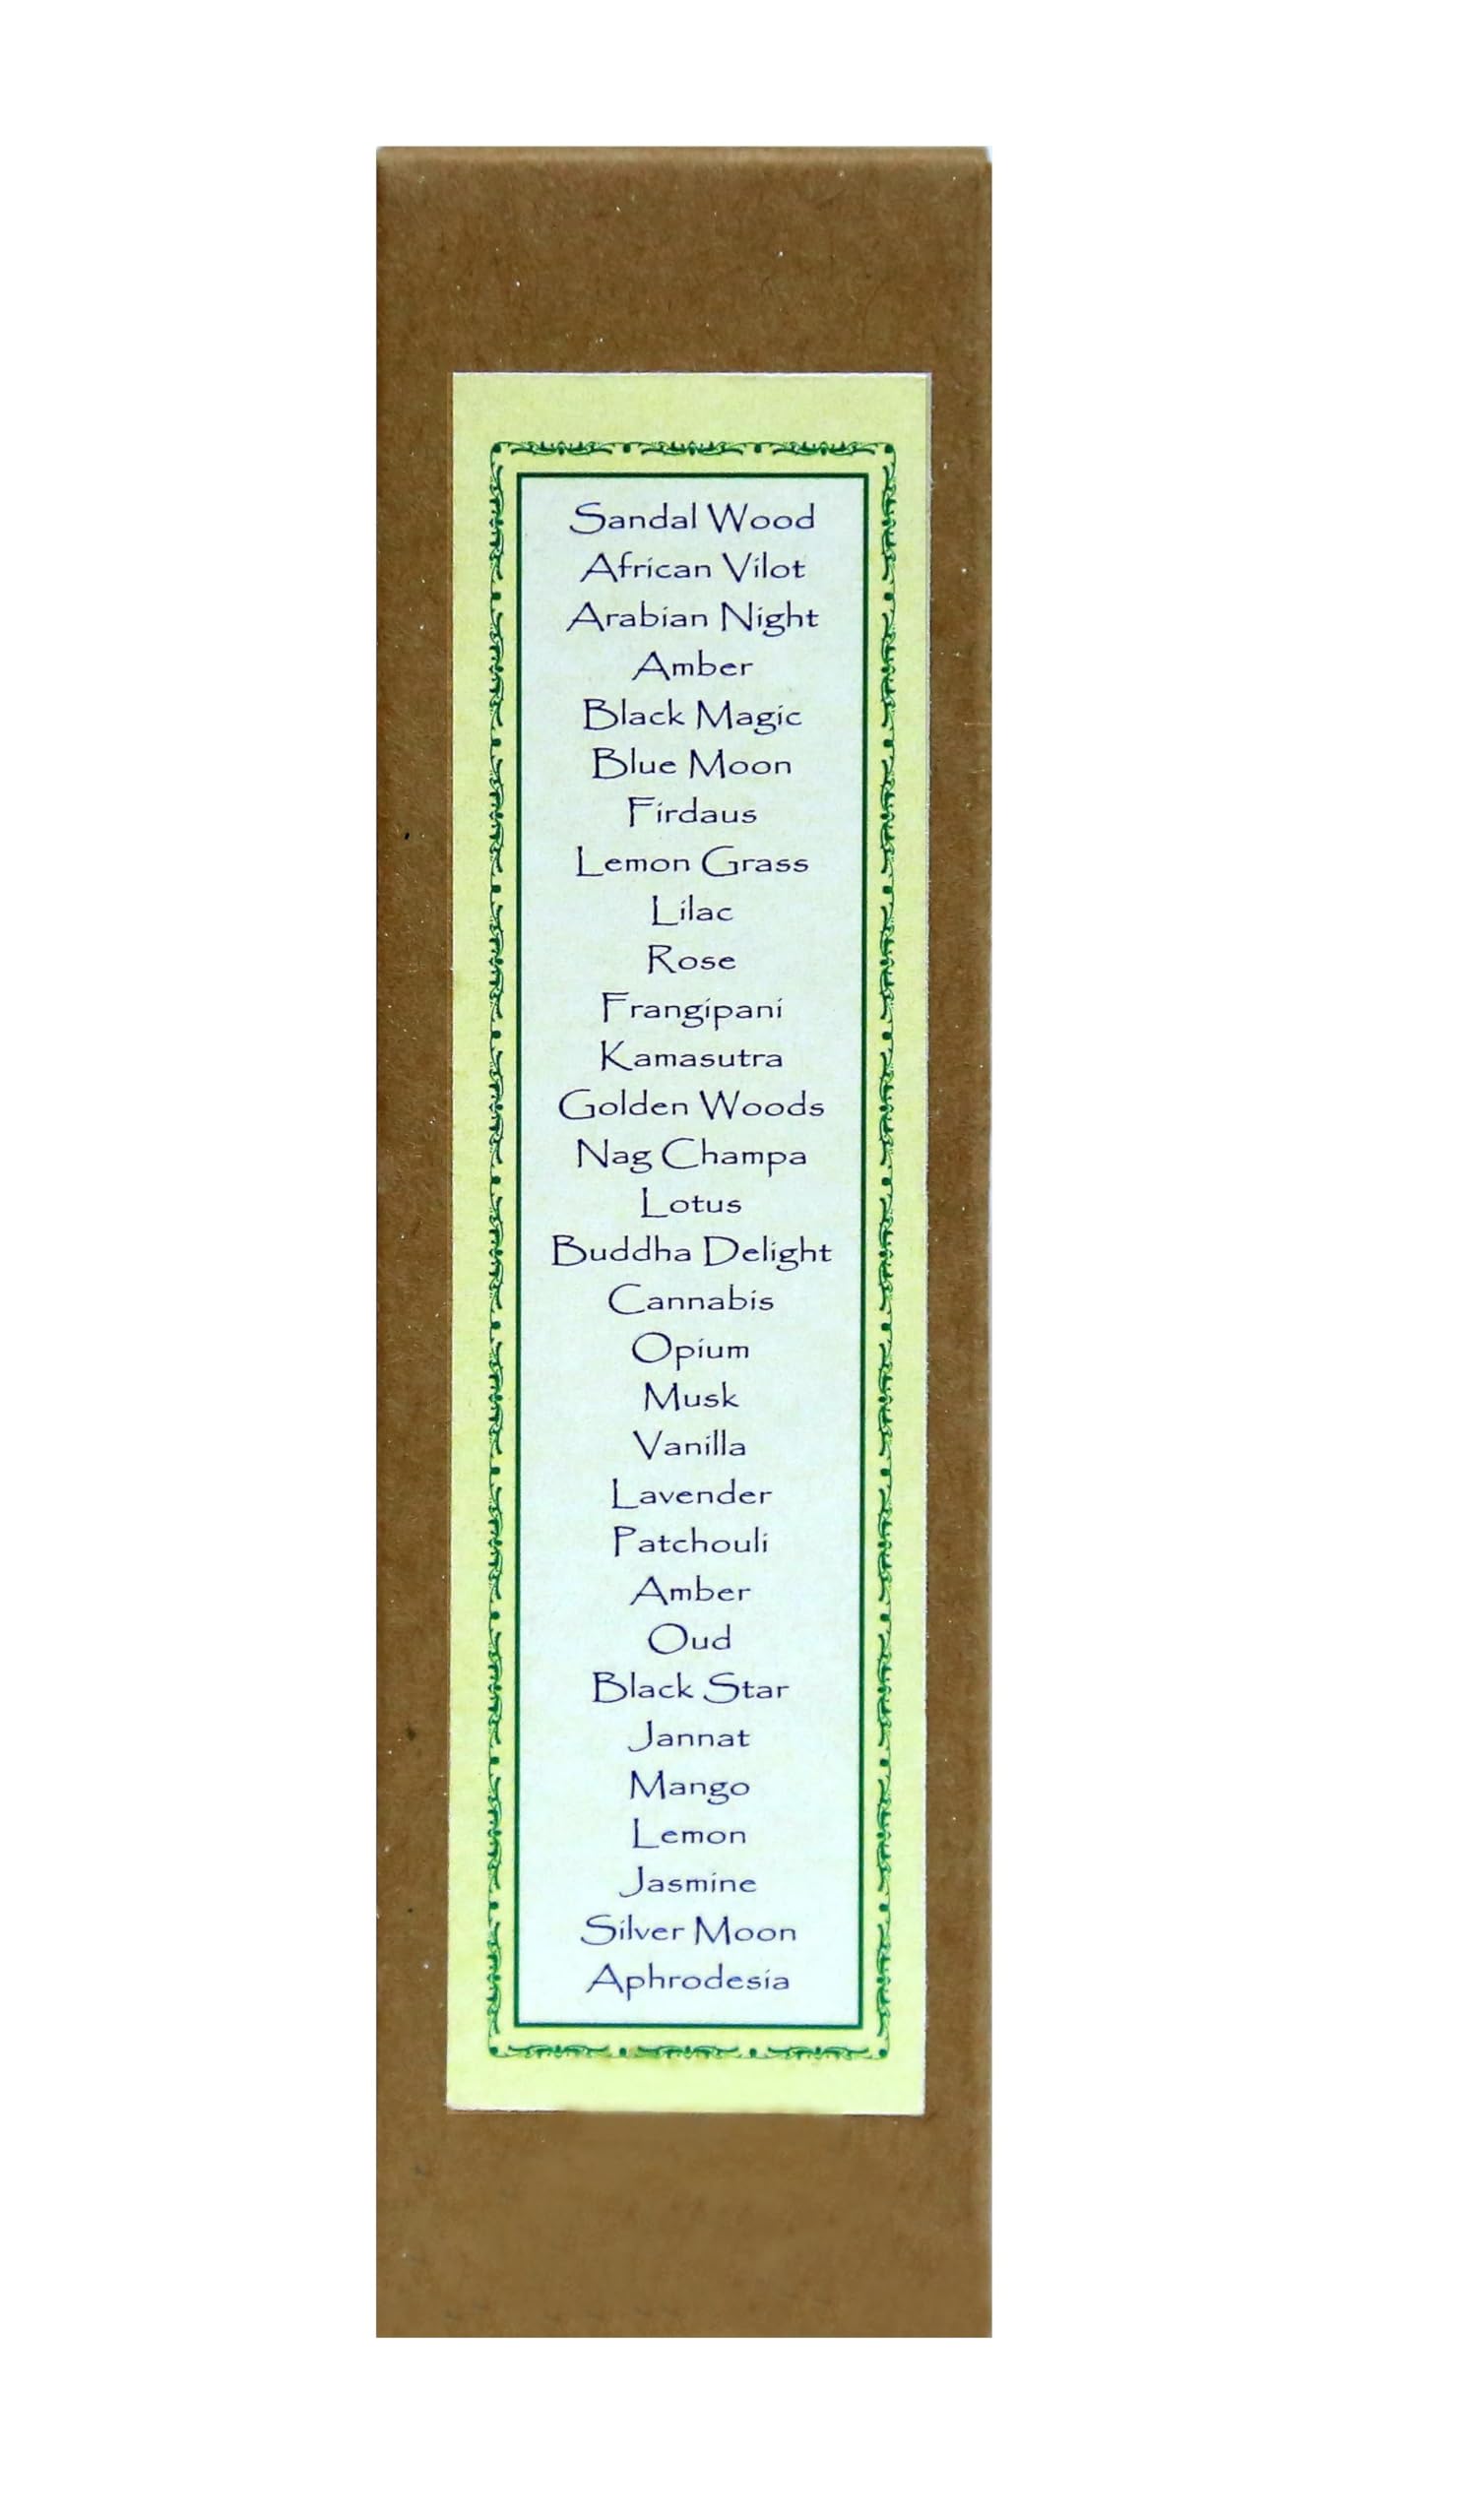 Sandal Wood
African Vilot
Arabian Night
Amber
Black Magic
Blue Moon
Firdaus
Lemon Grass
Lilac
Rose
Frangipani
Kamasutra
Golden Woods
Nag Champa
Lotus
Buddha Delight
Cannabis
Opium
Musk
Vanilla
Lavender
Patchouli
Amber
Oud
Black Star
Jannat
Mango
Lemon
Jasmine
Silver Moon
Aphrodesia